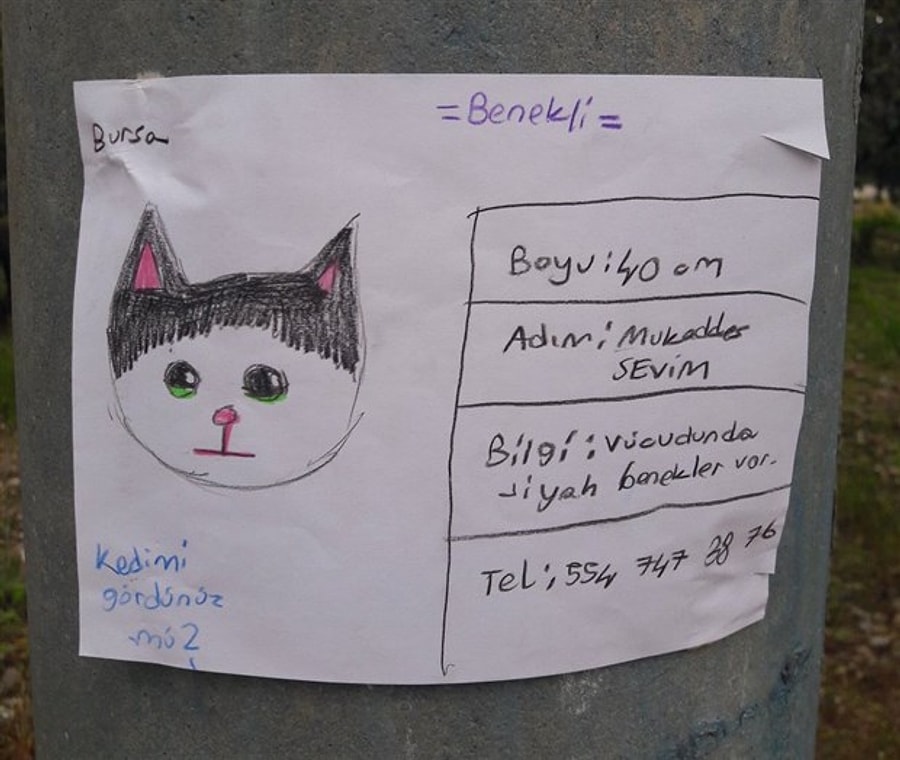 Bursa
=Benekli=
Boyu: 40 cm
Adım: Mukaddes
SEVİM
Bilgi: Vücudunda
siyah benekler var.
Tel: 554 747 38 76
Kedimi
gördünüz
mü?